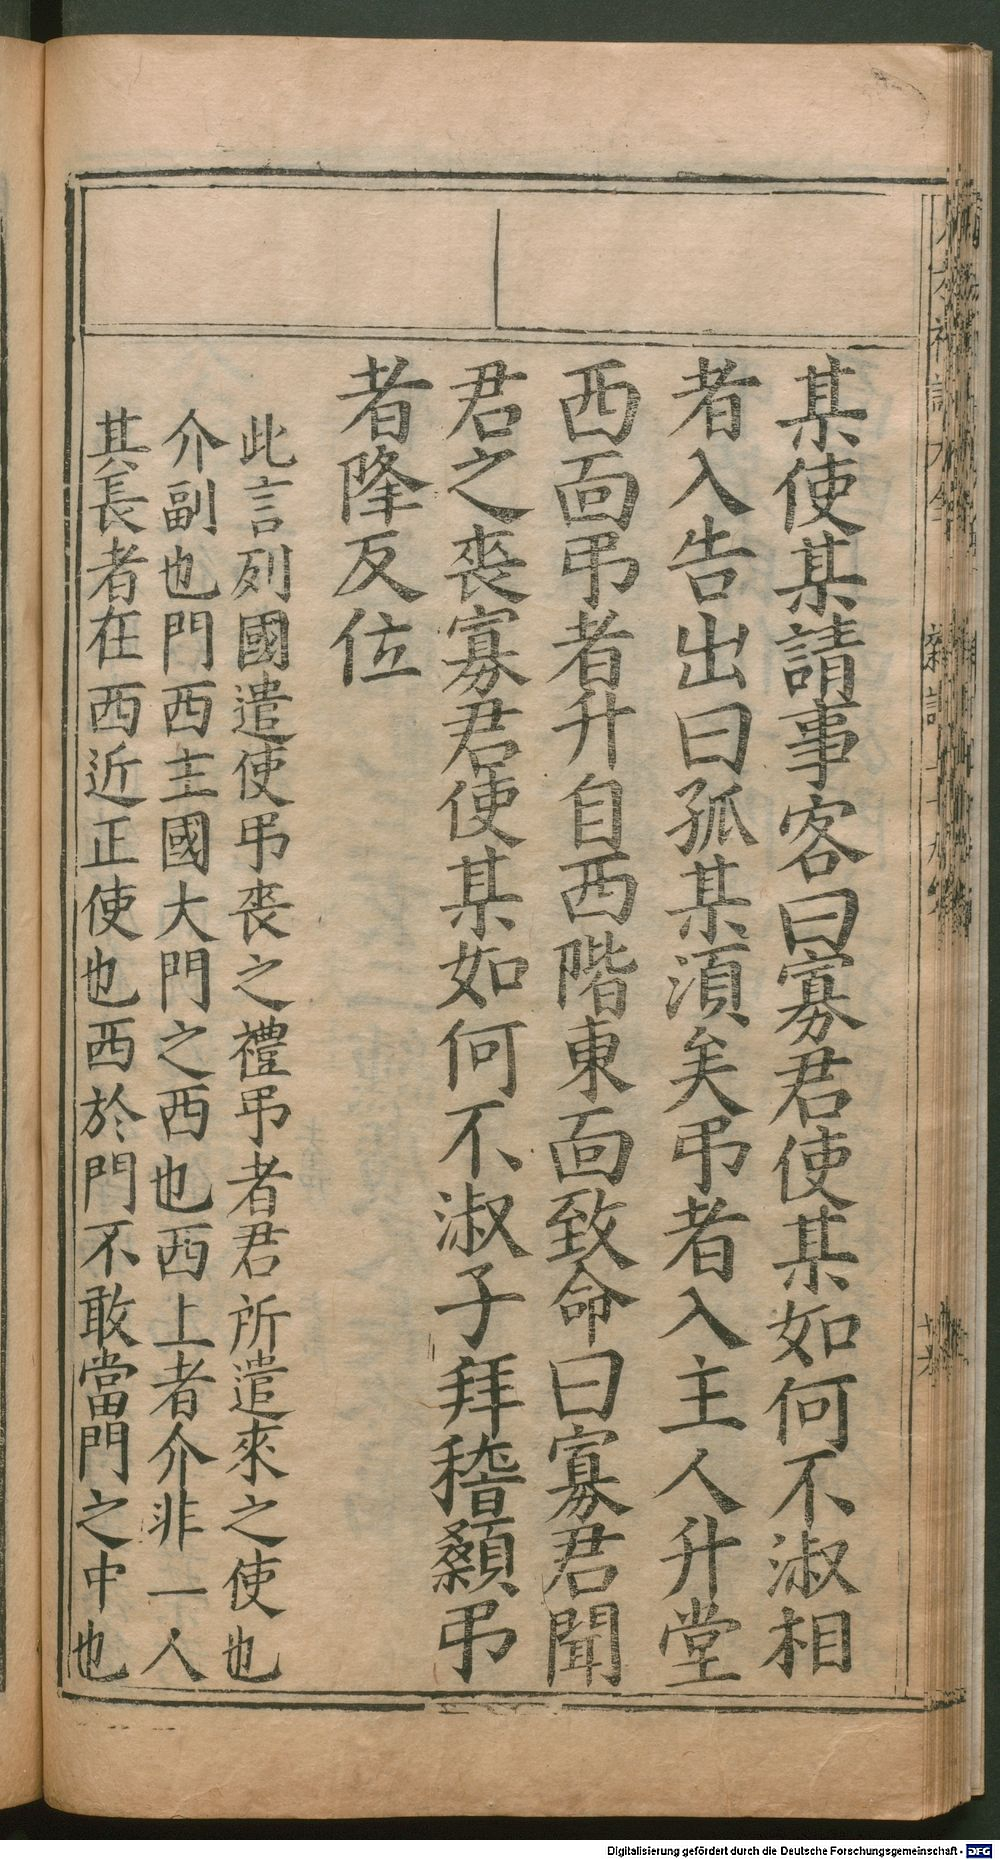 某使某請事客曰寡君使某如何不淑相
者入告出曰孤某湏矣弔者入主人升堂
西面弔者升自西階東面致命曰寡君聞
君之喪寡君使某如何不淑子拜稽顙弔
者降反位
此言列國遣使弔喪之禮弔者君所遣來之使也
介副也門西主國大門之西也西上者介非一人
其長者在西近正使也西於門不敢當門之中也
Digitalisierung gefördert durch die Deutsche Forschungsgemeinschaft - DFG